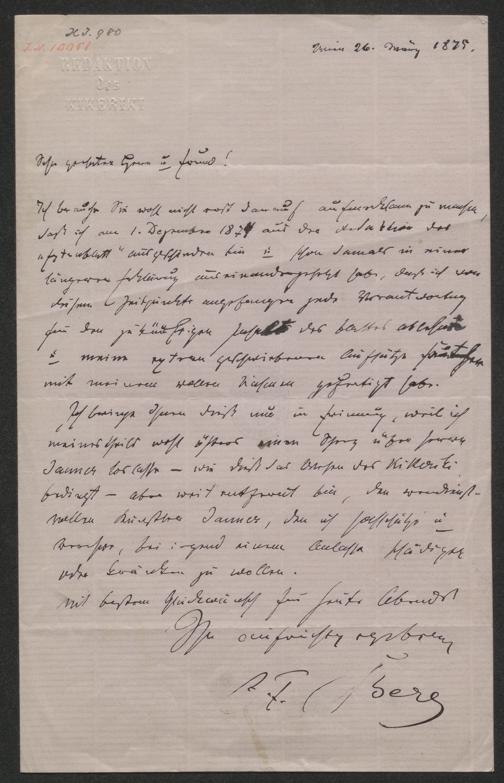 H.I. 980
REDAKTION
des
KIKERIKI
Wien 26. März 1875.
Sehr geehrter Herr u Freund!
Ich brauche Sie wohl nicht erst darauf aufmerksam zu machen,
daß ich am 1. Dezember 1874 aus der Redaktion des
"Extrablatt" ausgeschieden bin u schon damals in einer
längeren Erklärung auseinandergesetzt habe, daß ich von
diesem Zeitpunkte angefangen jede Verantwortung
für den zukünftigen Inhalt des Blattes ablehne
u meine extra geschriebenen Aufsätze
mit meinem vollen Namen gefertigt habe.
Ich bringe Ihnen dieß nur in Erinnerung, weil ich
meinestheils wohl öfters einen Scherz über Herrn
Janner loslasse – wie dieß das Wesen des Kikeriki
bedingt – aber weit entfernt bin, den verdienst-
vollen Künstler Janner, den ich hochschätze u
verehre, bei irgend einem Anlasse schädigen
oder kränken zu wollen.
Mit bestem Glückwunsch für heute Abends
Ihr aufrichtig ergebener
O. F. Berg